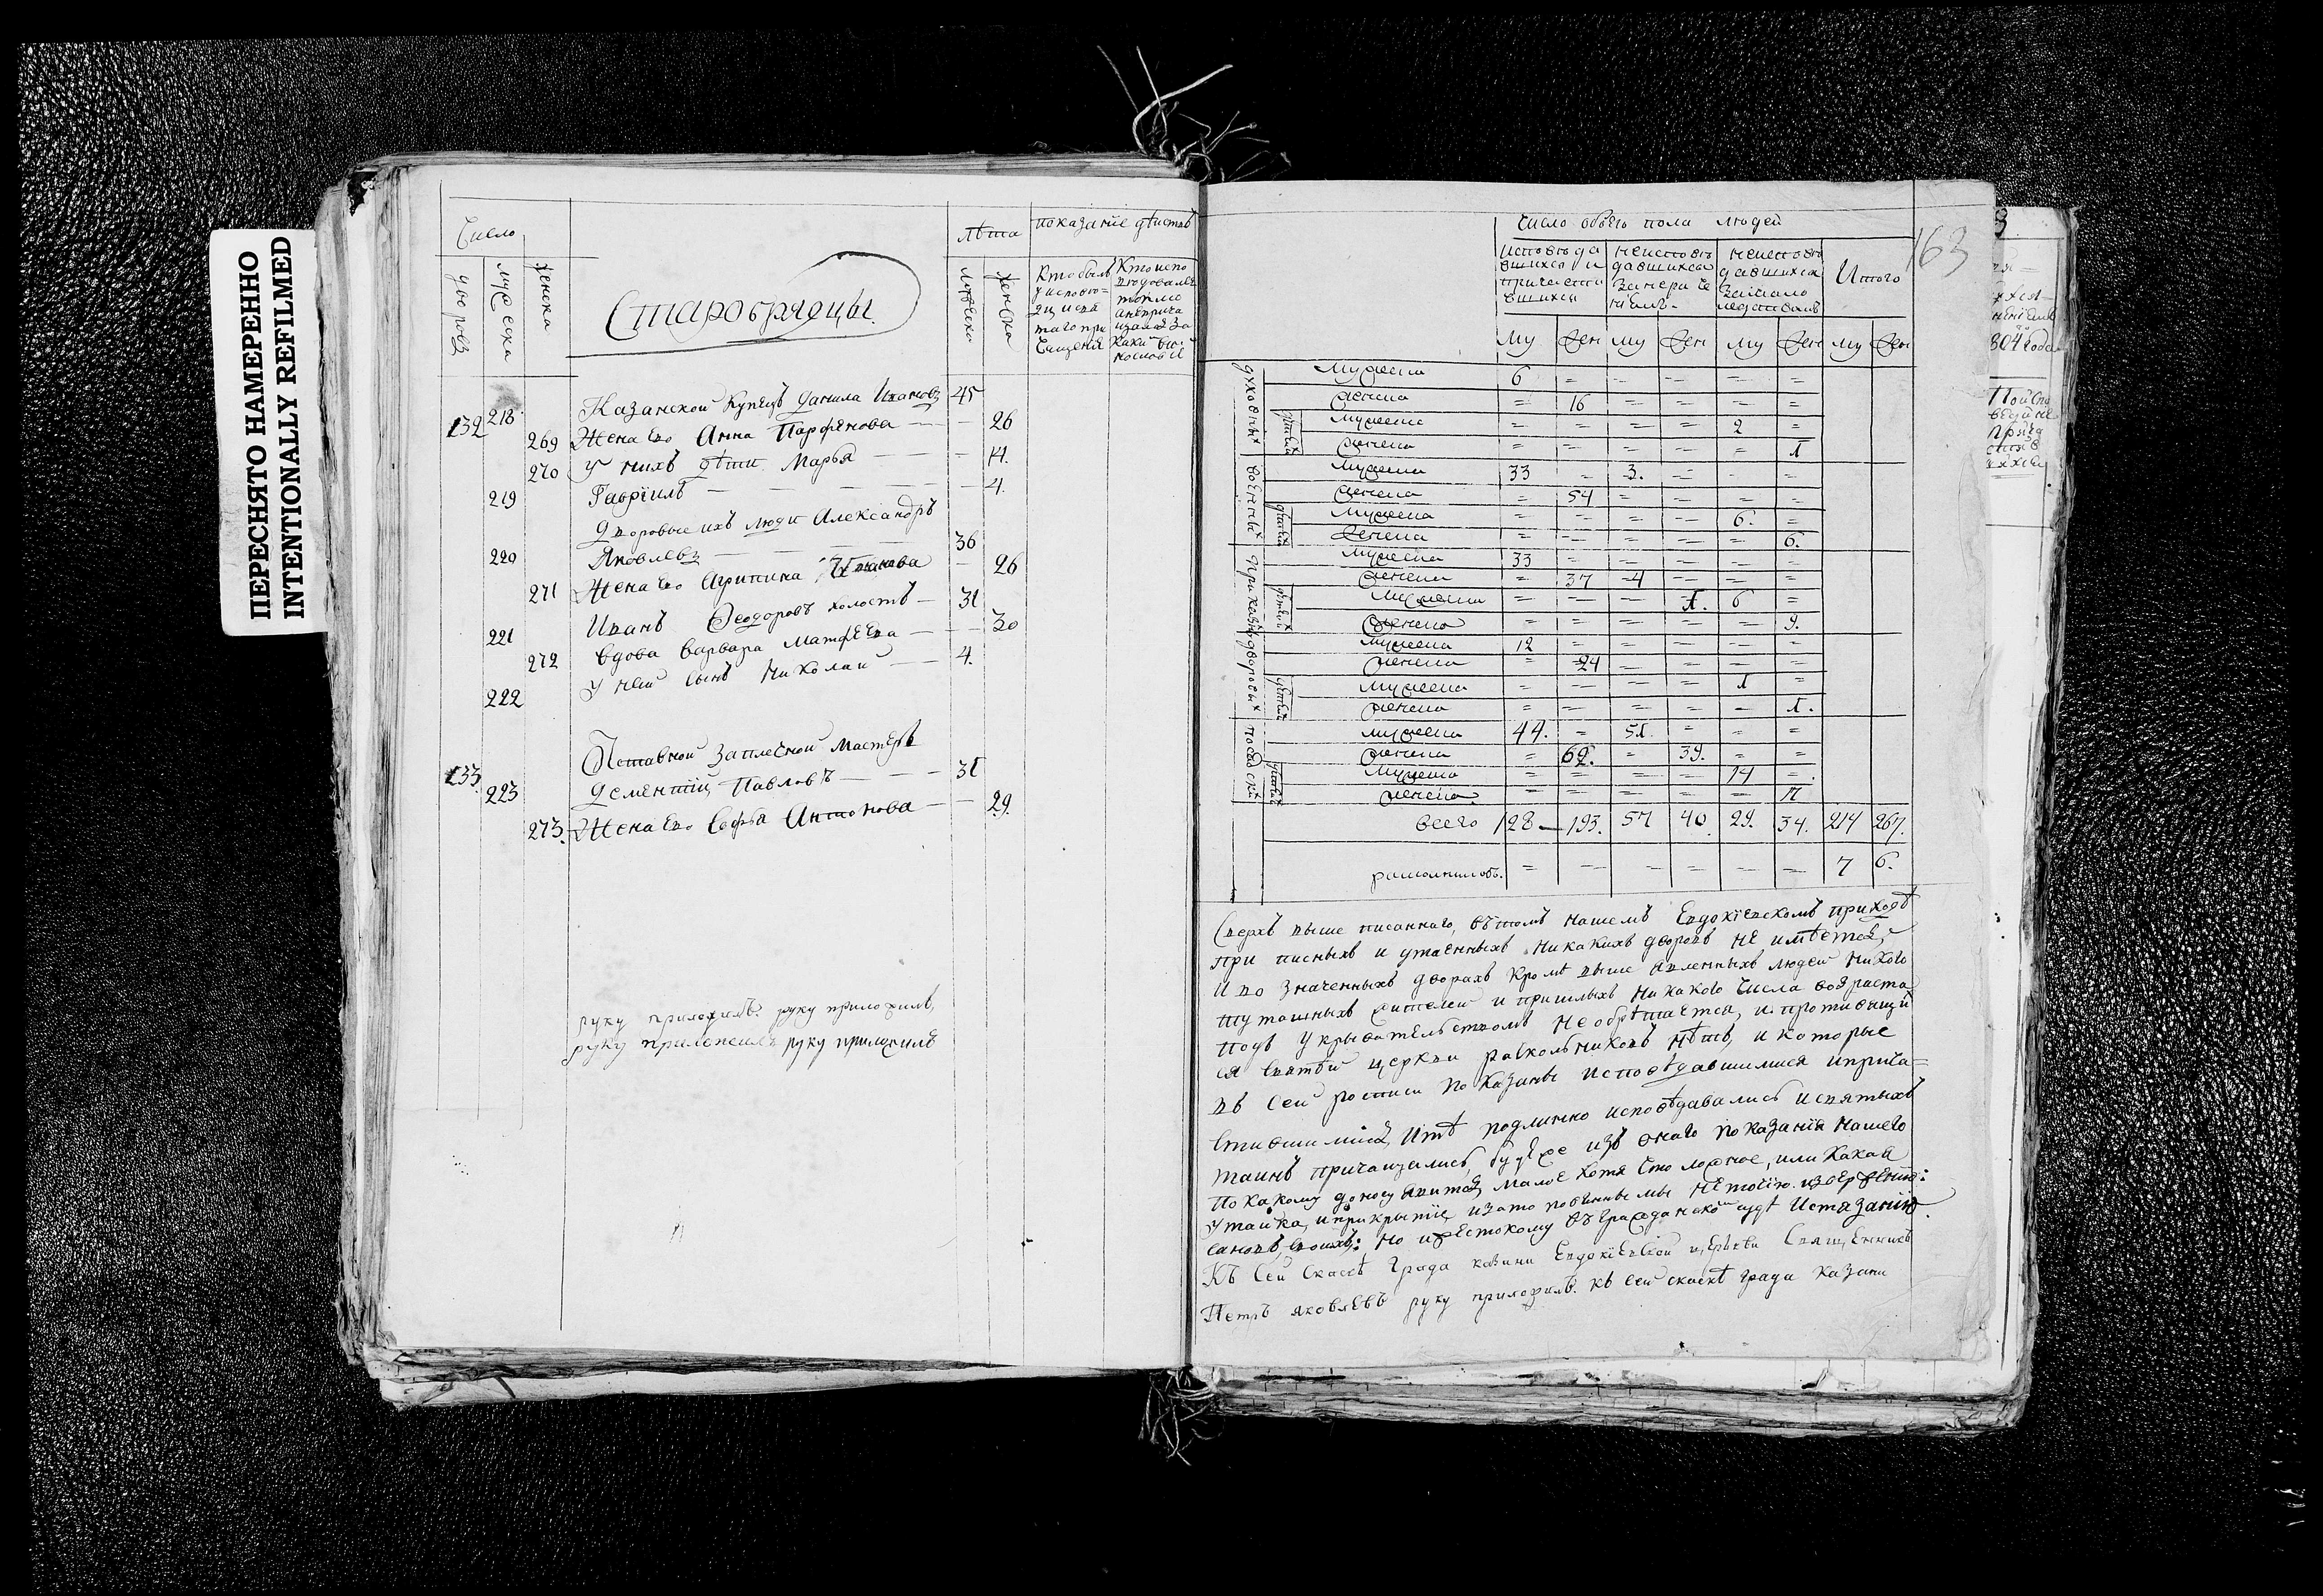 ПЕРЕСНЯТО НАМЕРЕННО
INTENTIONALLY REFILMED
Число
дворовъ
мужеска
женска
Старобрядцы.
лѣта
мужеска
женска
показаніе дѣйствъ
Кто былъ
у исповѣ=
ди и свя
таго при
чащенія
Кто испо
вѣдовалъ
токмо
а не прича
щался за
какой ви=
ною
132 218 Казанской Купецъ Данила Ивановъ 45
269 Жена Ево Анна Парфенова — — 26
270 У нихъ дѣти Марья — — — 14.
219 Гавріилъ — — — — 4.
Дворовые ихъ люди Александръ
220 Яковлевъ — — — — 36
271 Жена Ево Агрипина — 26
221 Иванъ Ѳеодоровъ холостъ — 31
272 Вдова Варвара Матфеева — — 30
222 У ней сынъ Николай — — 4.
Отставной мастеръ
133. 223 Дементій Павловъ — — — 31
273. Жена Ево Софья Антонова — — 29.
руку приложилъ. руку приложилъ,
руку приложилъ руку приложилъ
163
Число обоего пола людей
исповѣда
вшихся и
причасти
вшихся
неисповѣ
давшихся
неисповѣ
давшихся
за мало
лѣтствомъ
Итого
му жен му жен му жен му жен
духовныхъ
мужеска 6 = = = = =
женска = 16 = = = =
дѣтей ихъ
мужеска = = = = 2 =
женска = = = = = 1
военныхъ
мужеска 33 = 3. = = =
женска = 54 = = = =
дѣтей ихъ
мужеска = = = = 6. =
женска = = = = = 6.
приказныхъ
мужеска 33 = = = = =
женска = 37 4 = = =
дѣтей ихъ
мужеска = = = 1. 6 =
женска = = = = = 9.
дворовыхъ
мужеска 12 = = = = =
женска = 24 = = = =
дѣтей ихъ
мужеска = = = = 1 =
женска = = = = = 1.
посадскихъ
мужеска 44. = 51. = = =
женска = 62. = 39. = =
дѣтей ихъ
мужеска = = = = 14 =.
женска = = = = = 17
всего 128 — 193. 57 40. 29. 34. 214 267.
= = = = = = 7 6.
Сверхъ выше писаннаго, въ томъ нашемъ Евдокіевскомъ приходѣ
при писныхъ и утаенныхъ никакихъ дворовъ не имѣется,
и во значенныхъ дворахъ кромѣ выше явленныхъ людей никого
тутошныхъ жителей и пришлыхъ никакого числа возраста
подъ укрывательствомъ не обрѣтается, и противящи
ся святѣй церкви раскольниковъ нѣтъ, и которые
въ сей росписи показаны исповѣдавшимися и прича=
стившимися, и тѣ подлинно исповѣдавались и святыхъ
таинъ причащались, будеже изъ онаго показанія нашего
по какому доносу явится малое хотя что ложное, или какая
утайка, и прикрытіе, и за то повинны мы не точію изверженію:
сановъ своихъ: но и жестокому въ гражданскомъ судѣ истязанію.
Къ сей скаскѣ града казани Евдокіевской церкви Священникъ
Петръ яковлевъ руку приложилъ. къ сей скаскѣ града казани
804 года